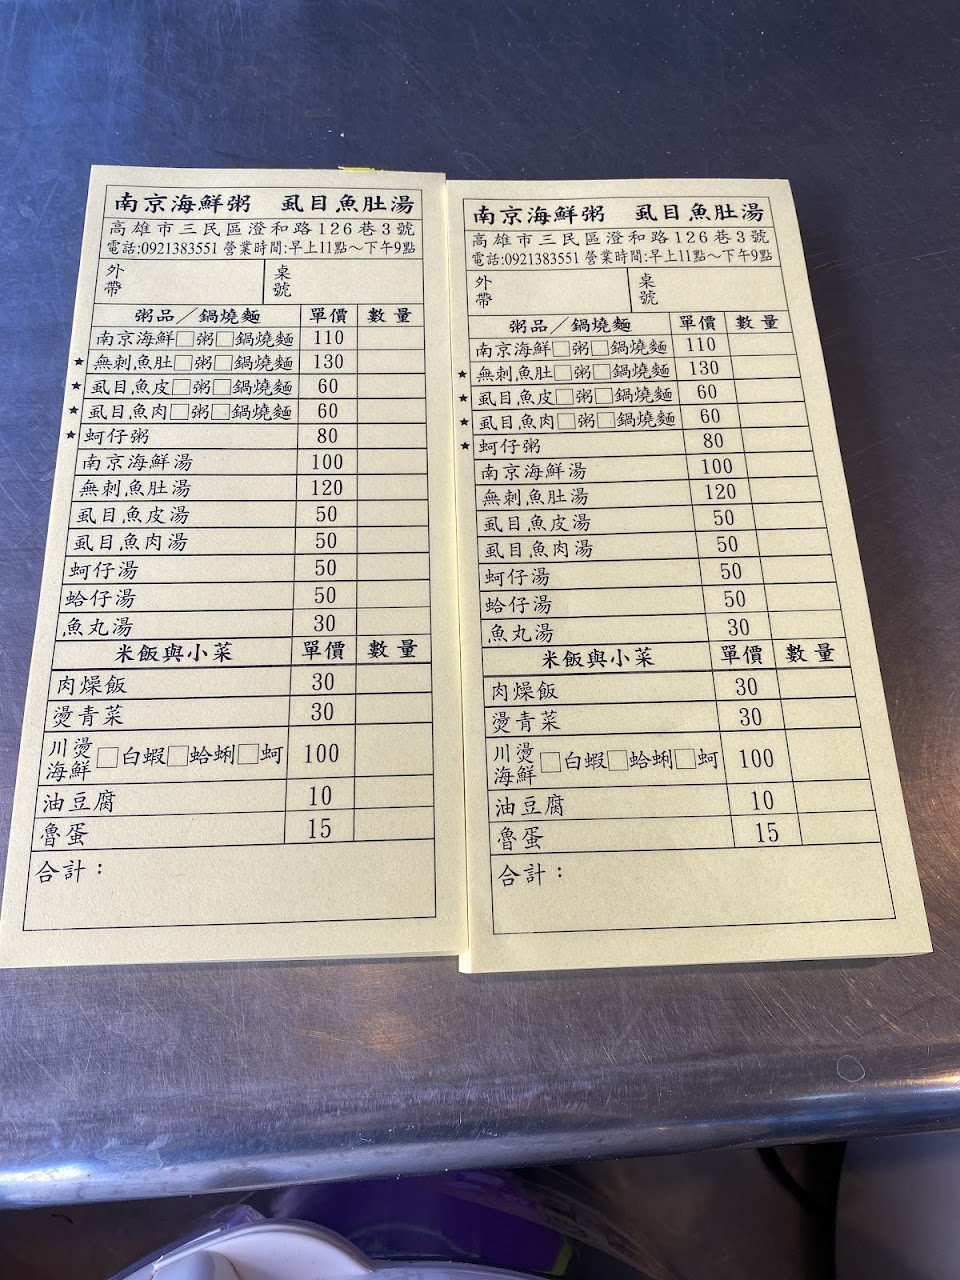 南京海鮮粥 虱目魚肚湯
高雄市三民區澄和路126巷3號
電話:0921383551 營業時間:早上11點～下午9點
外帶 桌號
粥品／鍋燒麵 單價 數量
南京海鮮□粥□鍋燒麵 110
★無刺魚肚□粥□鍋燒麵 130
★虱目魚皮□粥□鍋燒麵 60
★虱目魚肉□粥□鍋燒麵 60
★蚵仔粥 80
南京海鮮湯 100
無刺魚肚湯 120
虱目魚皮湯 50
虱目魚肉湯 50
蚵仔湯 50
蛤仔湯 50
魚丸湯 30
米飯與小菜 單價 數量
肉燥飯 30
燙青菜 30
川燙海鮮 □白蝦□蛤蜊□蚵 100
油豆腐 10
魯蛋 15
合計：
南京海鮮粥 虱目魚肚湯
高雄市三民區澄和路126巷3號
電話:0921383551 營業時間:早上11點～下午9點
外帶 桌號
粥品／鍋燒麵 單價 數量
南京海鮮□粥□鍋燒麵 110
★無刺魚肚□粥□鍋燒麵 130
★虱目魚皮□粥□鍋燒麵 60
★虱目魚肉□粥□鍋燒麵 60
★蚵仔粥 80
南京海鮮湯 100
無刺魚肚湯 120
虱目魚皮湯 50
虱目魚肉湯 50
蚵仔湯 50
蛤仔湯 50
魚丸湯 30
米飯與小菜 單價 數量
肉燥飯 30
燙青菜 30
川燙海鮮 □白蝦□蛤蜊□蚵 100
油豆腐 10
魯蛋 15
合計：